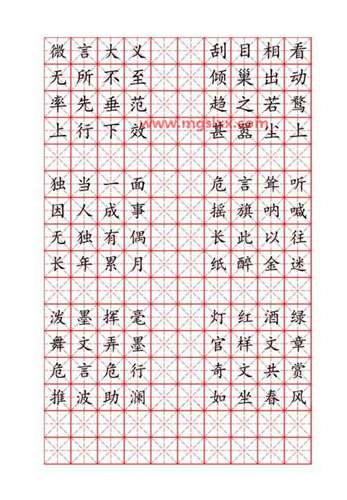 微言大义 刮目相看
无所不至 倾巢出动
率先垂范 趋之若鹜
www.mgslxx.com
上行下效 甚嚣尘上
独当一面 危言耸听
因人成事 摇旗呐喊
无独有偶 长此以往
长年累月 纸醉金迷
泼墨挥毫 灯红酒绿
舞文弄墨 官样文章
危言危行 奇文共赏
推波助澜 如坐春风